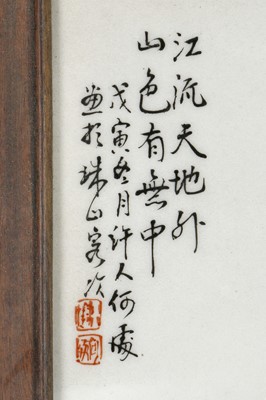 江流天地外
山色有無中
戊寅冬月許人何處
畫於珠山客次